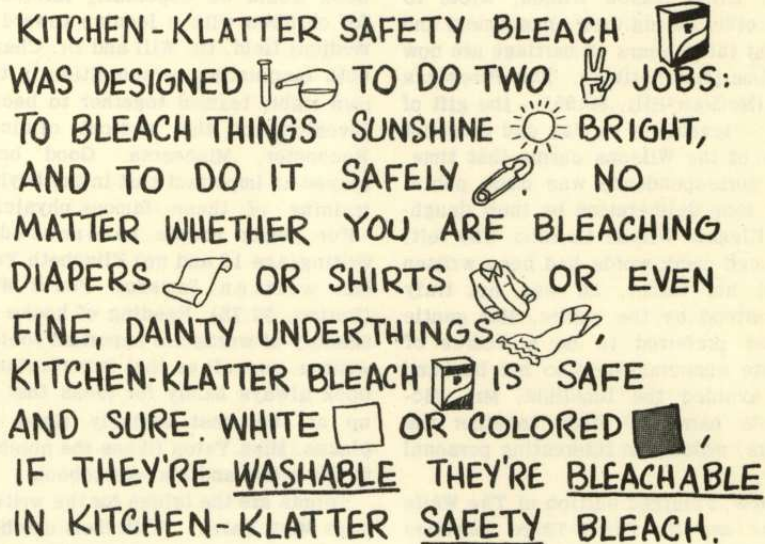 KITCHEN-KLATTER SAFETY BLEACH
WAS DESIGNED TO DO TWO JOBS:
TO BLEACH THINGS SUNSHINE BRIGHT,
AND TO DO IT SAFELY NO
MATTER WHETHER YOU ARE BLEACHING
DIAPERS OR SHIRTS OR EVEN
FINE, DAINTY UNDERTHINGS,
KITCHEN-KLATTER BLEACH IS SAFE
AND SURE. WHITE OR COLORED,
IF THEY'RE WASHABLE THEY'RE BLEACHABLE
IN KITCHEN-KLATTER SAFETY BLEACH.